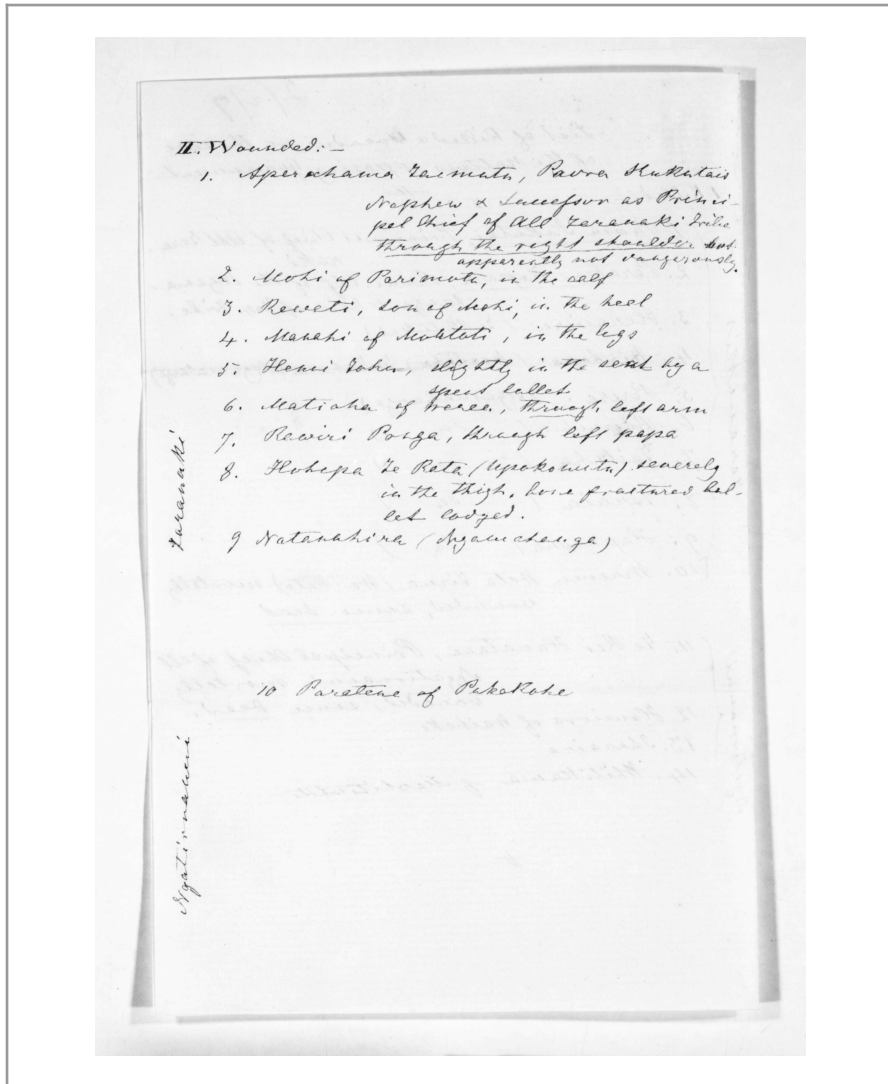 II. Wounded: –
1. Aperahama , Paora Kukutais
Nephew & Successor as Princi-
pal Chief of All Taranaki tribe
through the right shoulder but
apparently not dangerously.
2. Mohi of Parimotu, in the calf
3. Reweti, son of Mohi, in the heel
4. Manahi of , in the legs
5. Hemi , slightly in the seat by a
spent bullet
6. Matiaha of , through left arm
7. Rawiri Ponga, through left papa
8. Hohepa Te Rata (Upokomutu) severely
in the thigh, bone fractured bul-
let lodged.
9 Natanahira ()
Taranaki
10 Paratene of Pakakohe
Ngatiruanui